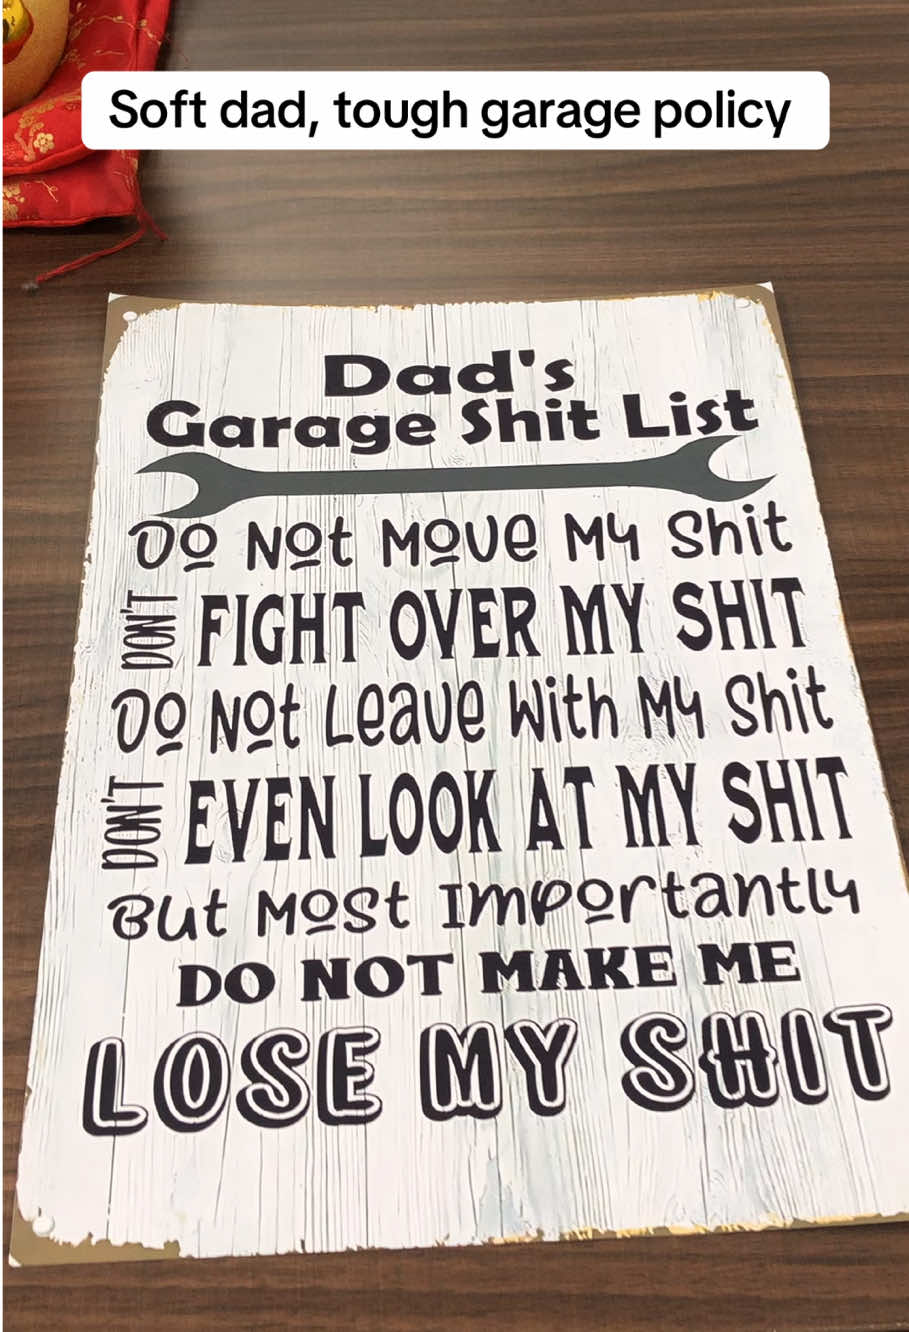 Soft dad, tough garage policy
Dad's
Garage Shit List
Do Not Move My Shit
DON'T FIGHT OVER MY SHIT
Do Not Leave With My Shit
DON'T EVEN LOOK AT MY SHIT
But Most Importantly
DO NOT MAKE ME
LOSE MY SHIT